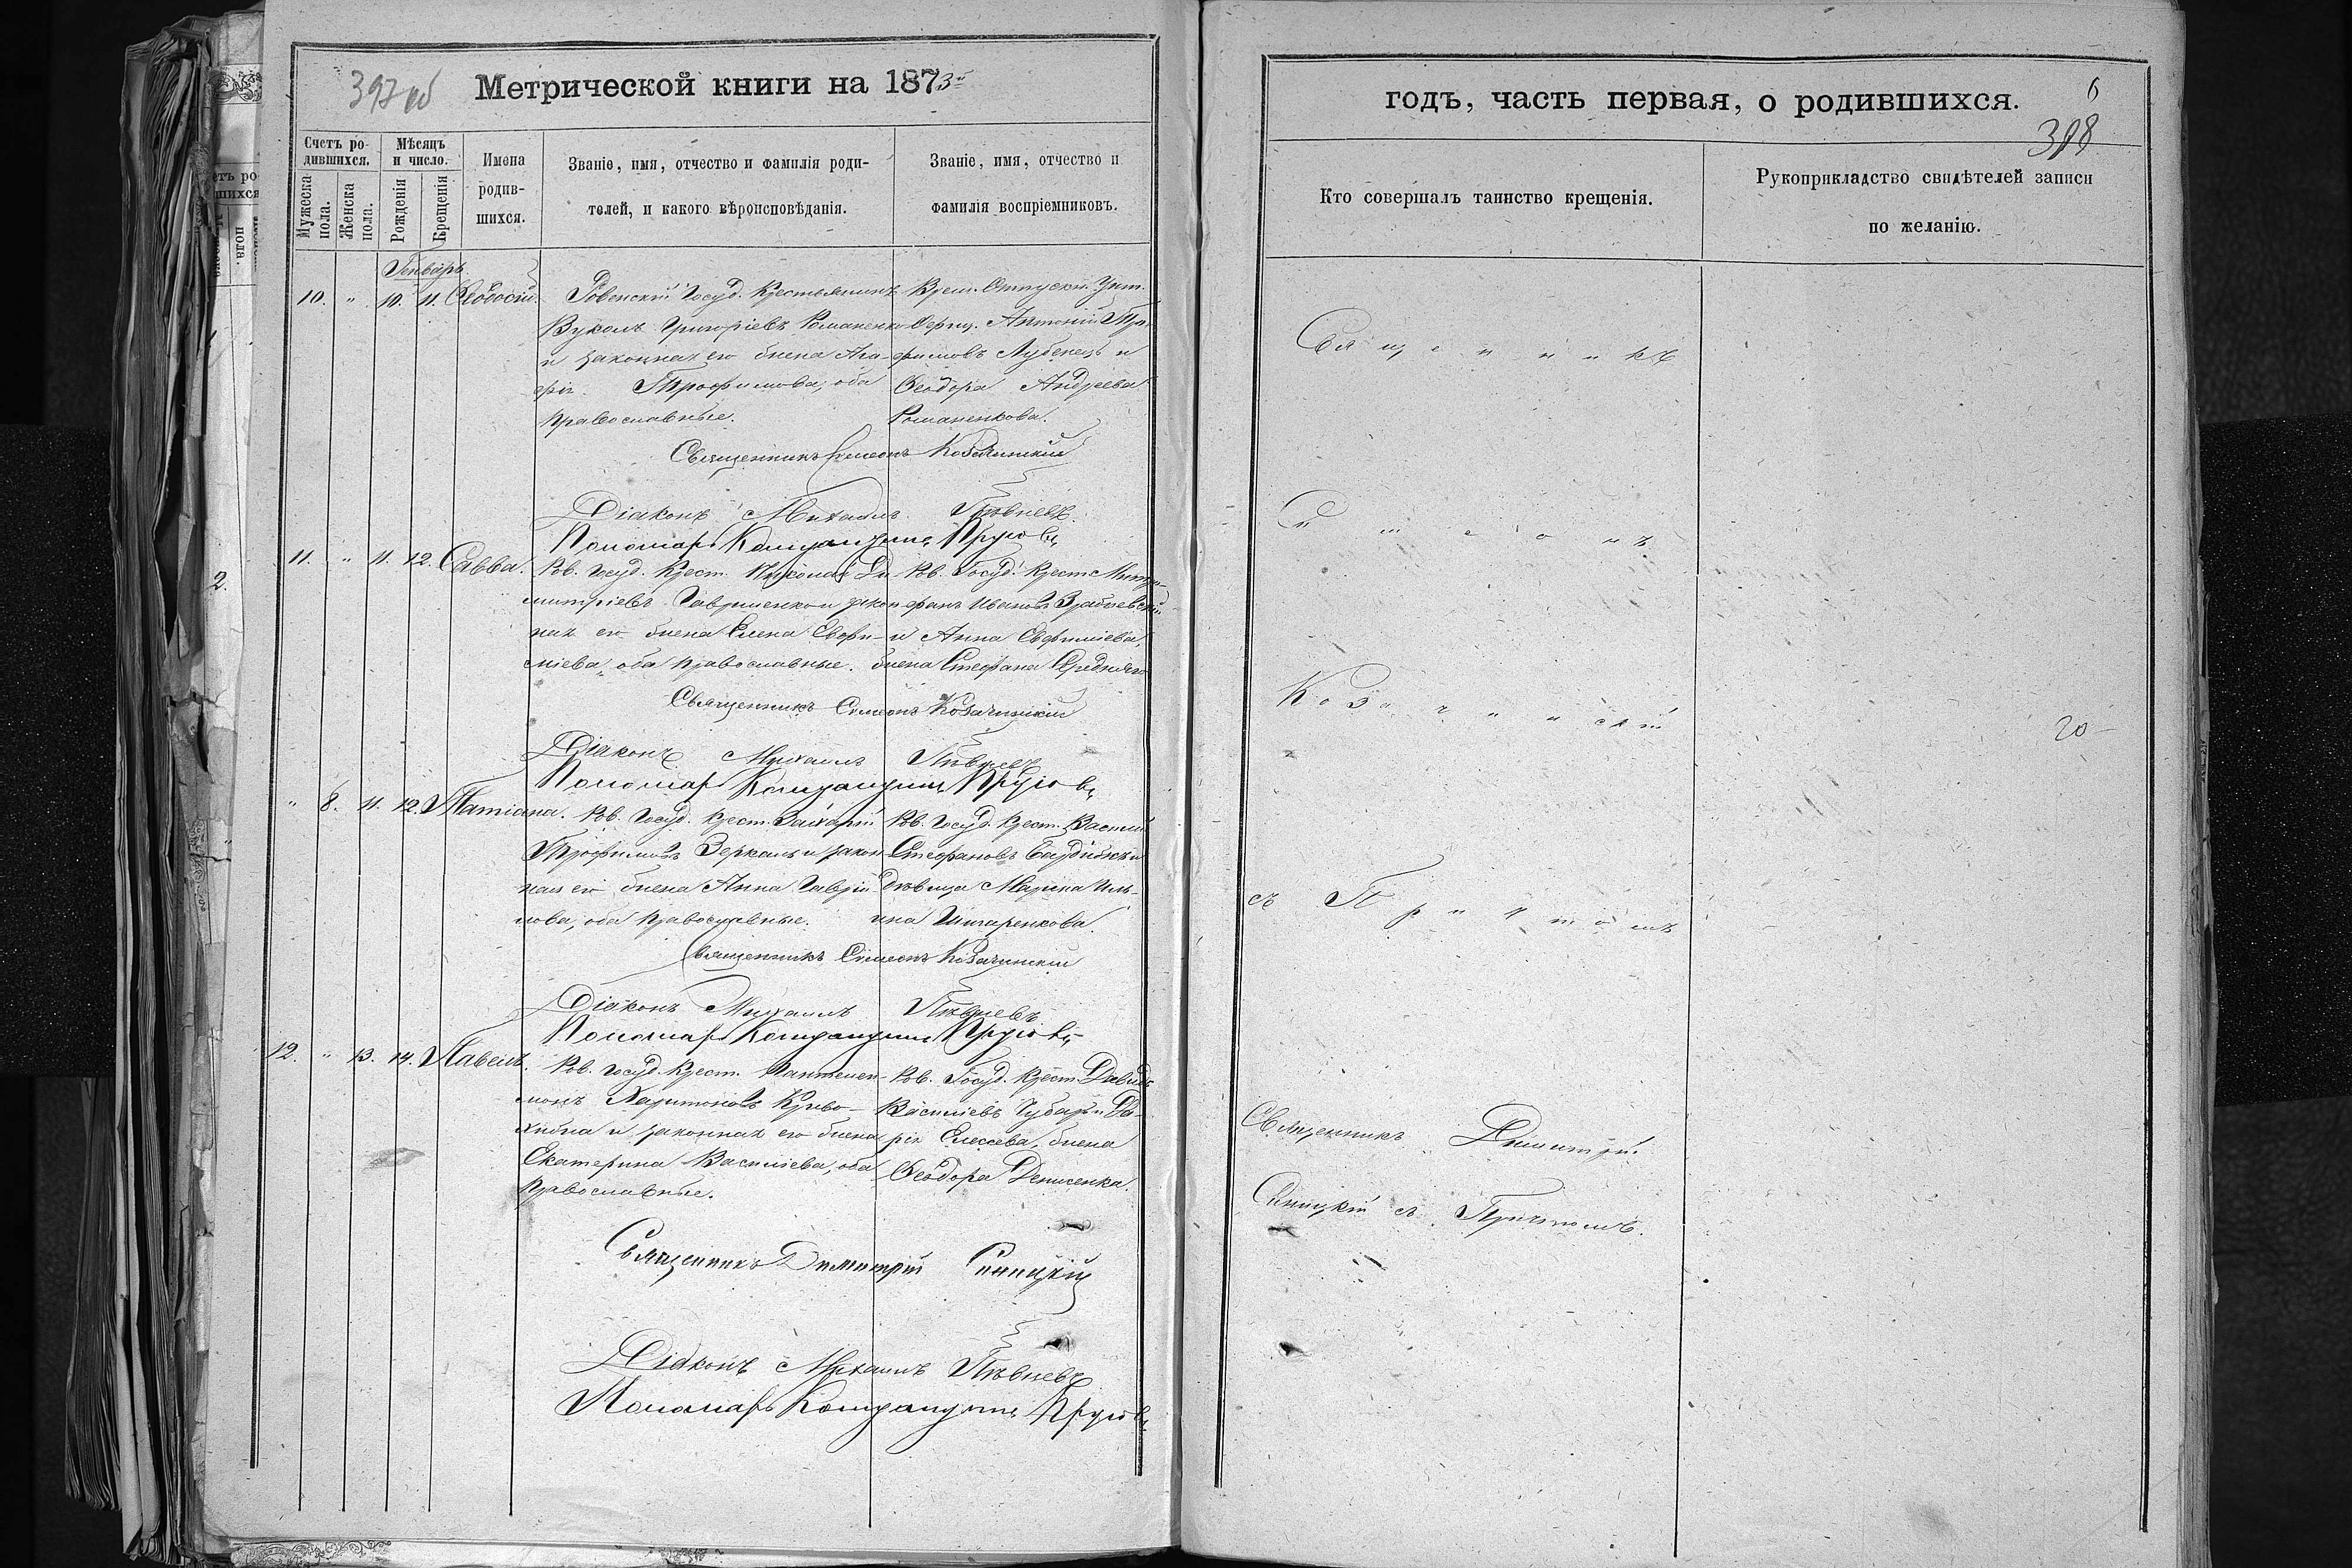 397 об
Метрической книги на 1873й
Счетъ ро-
дившихся.
Мѣсяцъ
и число.
Имена
родив-
шихся.
Званіе, имя, отчество и фамилія роди-
телей, и какого вѣроисповѣданія.
Званіе, имя, отчество и
фамилія воспріемниковъ.
Мужеска
пола.
Женска
пола.
Рожденія
Крещенія
Генварь
10. " 10. 11. Ѳеодосій. Ровенскій Госуд. Крестьянинъ
Вуколъ Григоріевъ Романенко
и законная его жена Ага-
фія Трофимова, оба
православные.
Врем. Отпускн. Унт.
Офиц. Антоній Тро-
фимовъ Лубенецъ и
Ѳеодора Андреева
Романенкова.
Священникъ Симеонъ Козачинскій
Діаконъ Михаилъ Пѣвневъ
Пономарь
11. " 11. 12. Савва. Ров. Госуд. Крест. Николай Ди-
митріевъ Гавриленко и закон-
ная его жена Елена Евфи-
міева, оба православные.
Ров. Госуд. Крест. Митро-
фанъ Ивановъ
и Анна Евфиміева,
жена Стефана
Священникъ Симеонъ Козачинскій
Діаконъ Михаилъ Пѣвневъ
Пономарь
" 8. 11. 12. Татіана. Ров. Госуд. Крест. Захарій
Трофимовъ Зеркаль и закон-
ная его жена Анна Гаврі-
лова, оба православные.
Ров. Госуд. Крест. Василій
Стефановъ
дѣвица Марина Иль-
ина
Священникъ Симеонъ Козачинскій
Діаконъ Михаилъ Пѣвневъ
Пономарь
12. " 13. 14. Павелъ. Ров. Госуд. Крест. Пантелеи-
монъ Харитоновъ Криво-
и законная его жена
Екатерина Василіева, оба
православные.
Ров. Госуд. Крест. Давидъ
Василіевъ Губарь и Да-
рія Елисеева, жена
Ѳеодора Денисенка.
Священникъ Димитрій Синицкій
Діаконъ Михаилъ Пѣвневъ
Пономарь
годъ, часть первая, о родившихся.
6
398
Кто совершалъ таинство крещенія.
Рукоприкладство свидѣтелей записи
по желанію.
Священникъ
Симеонъ
Козачинскій
20
съ Причтомъ
Священникъ Димитрій
Синицкій съ Причтомъ.
2.